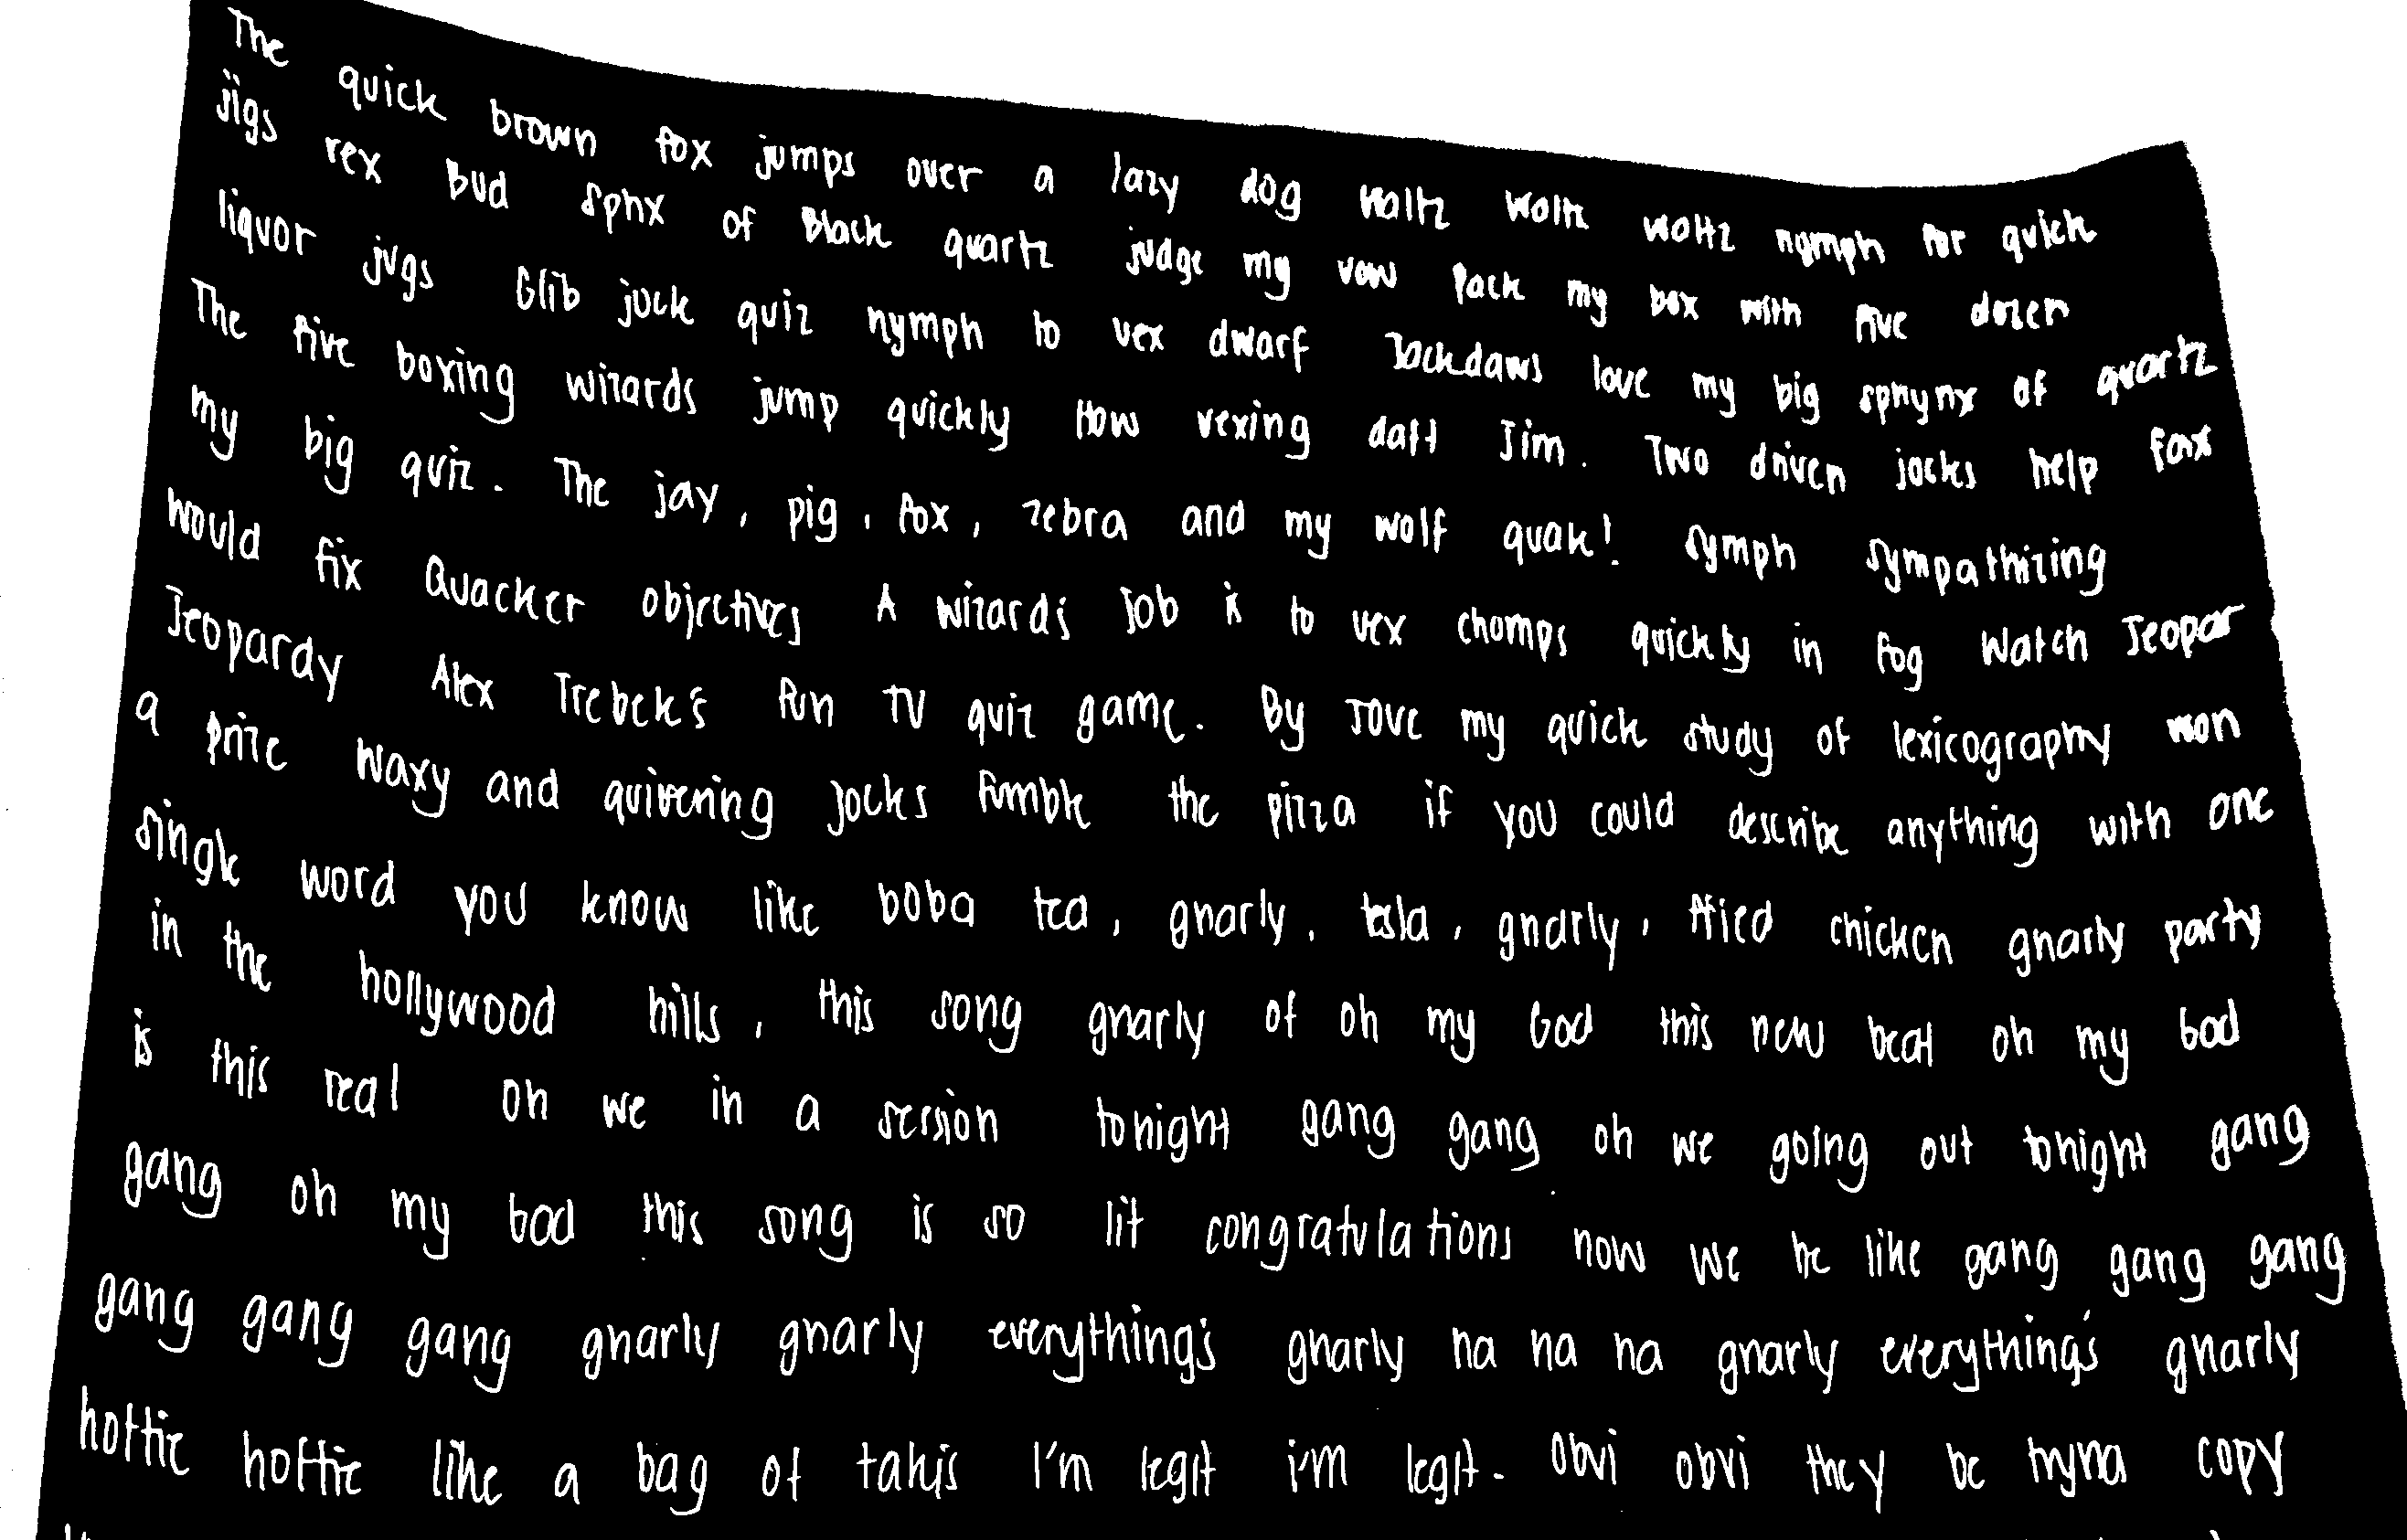 The quick brown fox jumps over a lazy dog waltz waltz waltz nymph for quick
jigs rex Bud sphx of Black quartz judge my vow Pack my box with five dozen
liquor jugs Glib jock quiz nymph to vex dwarf Jackdaws love my big sphynx of quartz
The five boxing wizards jump quickly How vexing daft Jim. Two driven jocks help fax
my big quiz. The jay, pig, fox, zebra and my wolf quak! Symph sympathizing
would fix Quacker objectives A wizard's job is to vex chomps quickly in fog Watch Jeopar
Jeopardy Alex Trebek's fun TV quiz game. By Jove my quick study of lexicography won
a prize Waxy and quivering jocks fumble the pizza if you could describe anything with one
single word you know like boba tea, gnarly, tesla, gnarly, fried chicken gnarly party
in the hollywood hills, this song gnarly of oh my God this new beat oh my God
is this real oh we in a session tonight gang gang oh we going out tonight gang
gang oh my God this song is so lit congratulations now we be like gang gang gang
gang gang gang gnarly gnarly everything's gnarly na na na gnarly everything's gnarly
hottie hottie like a bag of takis I'm legit i'm legit. Obvi obvi they be tryna copy